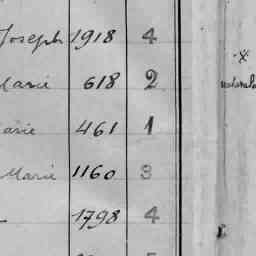 Joseph 1918 4
Marie 618 2
Marie 461 1
Marie 1160 3
1798 4